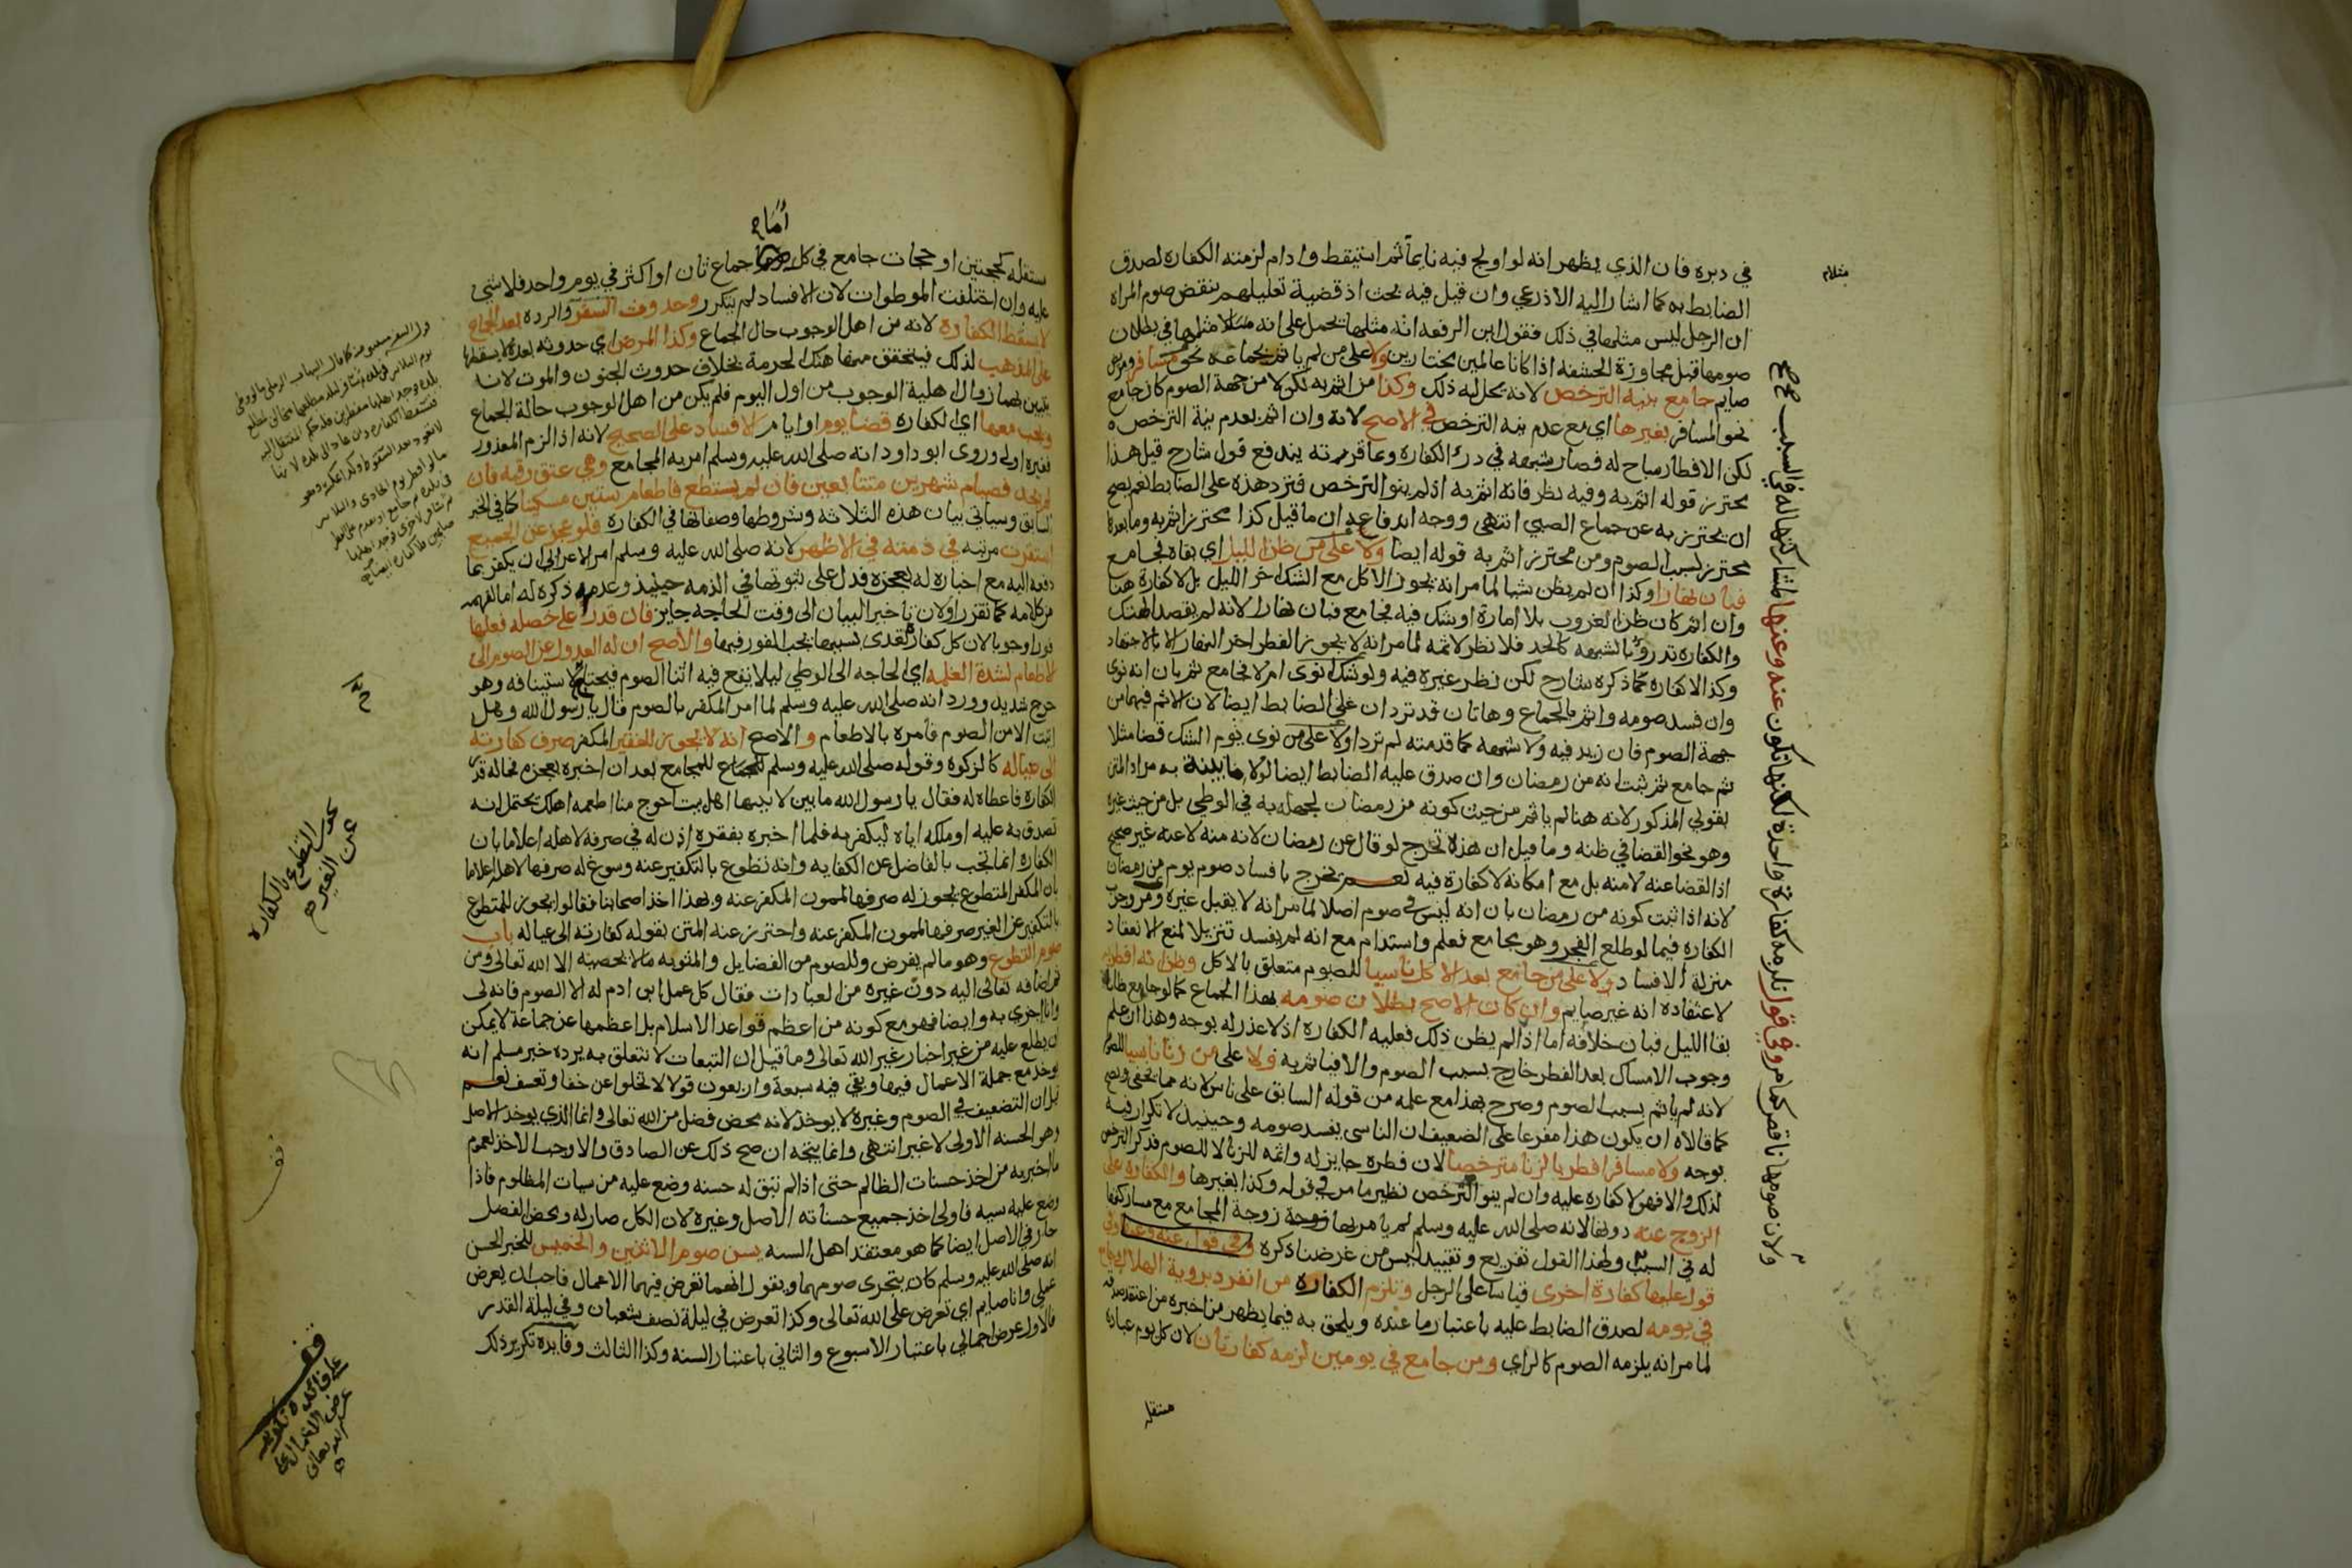 في دبره فان الذي يظهر انه لو اولج فيه نايما ثم استيقظ وادام لزمته الكفاره لصدق
الضابط به كما اشار اليه الاذرعي وان قيل فيه بحث اذ قضية تعليلهم بنقض صوم المراه
ان الرجل ليس مثلها في ذلك فقول ابن الرفعه انه مثلها يحمل على انه مثلها في بطلان
صومها قبل مجاوزة الحشفه اذا كانا عالمين مختارين ولا على من لم ياثم بجماعه نحو مسافر
صايم جامع بنية الترخص لانه يحل له ذلك وكذا من اثم به لكن لا من جهة الصوم كان جامع
نحو المسافر بغيرها اي مع عدم نية الترخص في الاصح لانه وان اثم بعدم نية الترخص
لكن الافطار مباح له فصار شبهه في درء الكفاره وبما قررته يندفع قول شارح قيل هذا
محترز قوله اثم به وفيه نظر فانه اثم به اذ لم ينو الترخص فترد هذه على الضابط نعم يصح
ان يحترز به عن جماع الصبي انتهى ووجه اندفاعه ان ما قيل كذا محترز اثم به وما بعده
محترز بسبب الصوم ومن محترز اثم به قوله ايضا ولا على من ظن الليل اي بقاه فجامع
فبان نهارا وكذا ان لم يظن شيا لما مر انه يجوز الاكل مع الشك اخر الليل بل لا كفارة هنا
وان اثم كان ظن الغروب بلا امارة او شك فيه فجامع فبان نهارا لانه لم يقصد الهتك
والكفاره تدرؤ بالشبهه كالحد فلا نظر لاثمه لما مر انه لا يجوز الفطر اخر النهار الا بالاجتهاد
وكذا لا كفاره كما ذكره شارح لكن نظر غيره فيه ولو شك نوى ام لا فجامع ثم بان انه نوى
وان فسد صومه واثم بالجماع وهاتان قد تردان على الضابط ايضا لان الاثم فيهما من
جهة الصوم فان زيد فيه ولا شبهه كما قدمته لم تردا ولا على من نوى يوم الشك قضا مثلا
ثم جامع ثم ثبت انه من رمضان وان صدق عليه الضابط ايضا لولا ما بينته به مراد المتن
بقولي المذكور لانه هنا لم ياثم من حيث كونه من رمضان لجهله به في الوطي بل من حيث غيره
وهو نحو القضا في ظنه وما قيل ان هذه تخرج لو قال عن رمضان لانه منه لا عنه غير صحيح
اذ القضا عنه لا منه بل مع امكانه لا كفارة فيه نعم يخرج بافساد صوم يوم من رمضان
لانه اذا ثبت كونه من رمضان بان انه ليس في صوم اصلا لما مر انه لا يقبل غيره
الكفاره فيما لو طلع الفجر وهو مجامع فعلم واستدام مع انه لم يفسد تنزيلا لمنع الانعقاد
منزلة الافساد ولا على من جامع بعد الاكل ناسيا للصوم متعلق بالاكل وظن انه افطر به
لاعتقاده انه غير صايم وان كان الاصح بطلان صومه بهذا الجماع كما لو جامع ظانا
بقا الليل فبان خلافه اما اذا لم يظن ذلك فعليه الكفاره اذ لا عذر له بوجه وهذا ان علم
وجوب الامساك بعد الفطر خارج بسبب الصوم والا فباثم به ولا على من زنا ناسيا للصوم
لانه لم ياثم بسبب الصوم وصرح بهذا مع علمه من قوله السابق على ناس لانه مما يخفى
كما قالاه ان يكون هذا مفرعا على الضعيف ان الناسي يفسد صومه وحينيذ لا تكرار فيه
بوجه ولا مسافر افطر بالزنا مترخصا لان فطره جايز له واثمه للزنا لا للصوم فذكر الترخص
لذلك والا فهو لا كفاره عليه وان لم ينو الترخص نظير ما مر في قوله وكذا بغيرها والكفاره على
الزوج عنه دونها لانه صلى الله عليه وسلم لم يامر بها زوجة المجامع مع مشاركتها
له في السبب ولهذا القول تفريع وتقييد ليس من غرضنا ذكره وفي قول عنه وعنها وفي
قول عليها كفارة اخرى قياسا على الرجل وتلزم الكفاره من انفرد بروية الهلال
في يومه لصدق الضابط عليه باعتبار ما عنده ويلحق به فيما يظهر من اخبره من اعتقد صدقه
لما مر انه يلزمه الصوم كالراي ومن جامع في يومين لزمه كفارتان لان كل يوم عباده
مستقله
ستقله كحجتين او حجات جامع في كل جماع ثان او اكثر في يوم واحد فلا شي
عليه وان اختلفت الموطوات لان الافساد لم يتكرر وحدوث السفر والرده بعد الجماع
لا يسقط الكفاره لانه من اهل الوجوب حال الجماع وكذا المرض اي حدوثه بعده لا يسقطها
على المذهب لذلك فيتحقق منها هتك الحرمة بخلاف حدوث الجنون والموت لانه
يتبين بهما زوال اهلية الوجوب من اول اليوم فلم يكن من اهل الوجوب حالة الجماع
ويجب معها اي الكفاره قضا يوم او ايام الافساد على الصحيح لانه اذا لزم المعذور
فغيره اولى وروى ابو داود انه صلى الله عليه وسلم امر به المجامع وهي عتق رقبه فان
لم يجد فصيام شهرين متتابعين فان لم يستطع فاطعام ستين مسكينا كما في الخبر
السابق وسياتي بيان هذه الثلاثه وشروطها وصفاتها في الكفاره فلو عجز عن الجميع
استقرت مرتبه في ذمته في الاظهر لانه صلى الله عليه وسلم امر الاعرابي ان يكفر بما
دفعه اليه مع اخباره له بعجزه فدل على ثبوتها في الذمه حينيذ وعدم ذكره له اما لفهمه
من كلامه كما تقرر او لان تاخير البيان الى وقت الحاجه جايز فان قدر على خصله فعلها
فورا وجوبا لان كل كفاره تعدى بسببها يجب الفور فيها والاصح ان له العدول عن الصوم الى
الاطعام لشدة الغلمه اي الحاجه الى الوطي ليلا يقع فيه اثنا الصوم فيحتاج لاستينافه وهو
حرج شديد وورد انه صلى الله عليه وسلم لما امر المكفر بالصوم قال يا رسول الله وهل
اتيت الا من الصوم فامره بالاطعام والاصح انه لا يجوز للفقير المكفر صرف كفارته
الى عياله كالزكوة وقوله صلى الله عليه وسلم للمجامع بعد ان اخبره بعجزه
الكفارة فاعطاه له فقال يا رسول الله ما بين لابتيها اهل بيت احوج منا اطعمه اهلك يحتمل انه
تصدق به عليه او ملكه اياه ليكفر به فلما اخبره بفقره اذن له في صرفه لاهله اعلاما بان
الكفاره انما تجب بالفاضل عن الكفايه وانه تطوع بالتكفير عنه وسوغ له صرفها لاهله اعلاما
بان المكفر المتطوع يجوز له صرفها لممون المكفر عنه وبهذا اخذ اصحابنا فقالوا يجوز للمتطوع
بالتكفير عن الغير صرفها لممون المكفر عنه واحترز عنه المتن بقوله كفارته الى عياله باب
صوم التطوع وهو ما لم يفرض وللصوم من الفضايل والمثوبه ما لا يحصيه الا الله تعالى ومن
ثم اضافه تعالى اليه دون غيره من العبادات فقال كل عمل ابن ادم له الا الصوم فانه لي
وانا اجزي به وايضا فهو مع كونه من اعظم قواعد الاسلام بل اعظمها عن جماعة لا يمكن
ان يطلع عليه من غير اخبار غير الله تعالى وما قيل ان التبعات لا تتعلق به يرده خبر مسلم انه
يوخذ مع جملة الاعمال فيها وبقي فيه سبعة واربعون قولا لا تخلوا عن خفا وتعسف نعم
قيل ان التضعيف في الصوم وغيره لا يوخذ لانه محض فضل من الله تعالى وانما الذي يوخذ الاصل
وهو الحسنه الاولى لا غير انتهى وانما يتجه ان صح ذلك عن الصادق والا وجب الاخذ بعموم
ما اخبر به من اخذ حسنات الظالم حتى اذا لم تبق له حسنه وضع عليه من سيات المظلوم فاذا
وضع عليه سيه فاولى اخذ جميع حسناته الاصل وغيره لان الكل صار له ومحض الفضل
جار في الاصل ايضا كما هو معتقد اهل السنه يسن صوم الاثنين والخميس للخبر الحسن
انه صلى الله عليه وسلم كان يتحرى صومهما ويقول انهما تعرض فيهما الاعمال فاحب ان يعرض
عملي وانا صايم اي تعرض على الله تعالى وكذا تعرض في ليلة نصف شعبان وفي ليلة القدر
فالاول عرض اجمالي باعتبار الاسبوع والثاني باعتبار السنه وكذا الثالث وفايده تكرير ذلك
ولان صومها ناقص كما مر وفي قول تلزمه كفارة واحدة لكنها تكون عنه وعنها لمشاركتها له في السبب صح
عن الغير
قف
على فائدة تكرير
عرض الاعمال